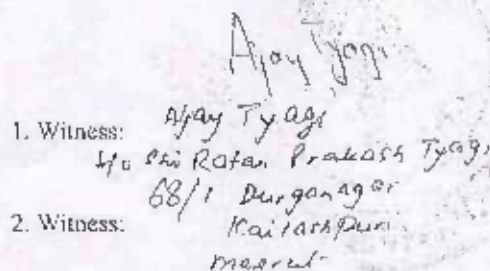 Ajay Tyagi
1. Witness: Ajay Tyagi
S/o Shri Ratan Prakash Tyagi
68/1 Durganagar
2. Witness: Kailashpuri
Meerut